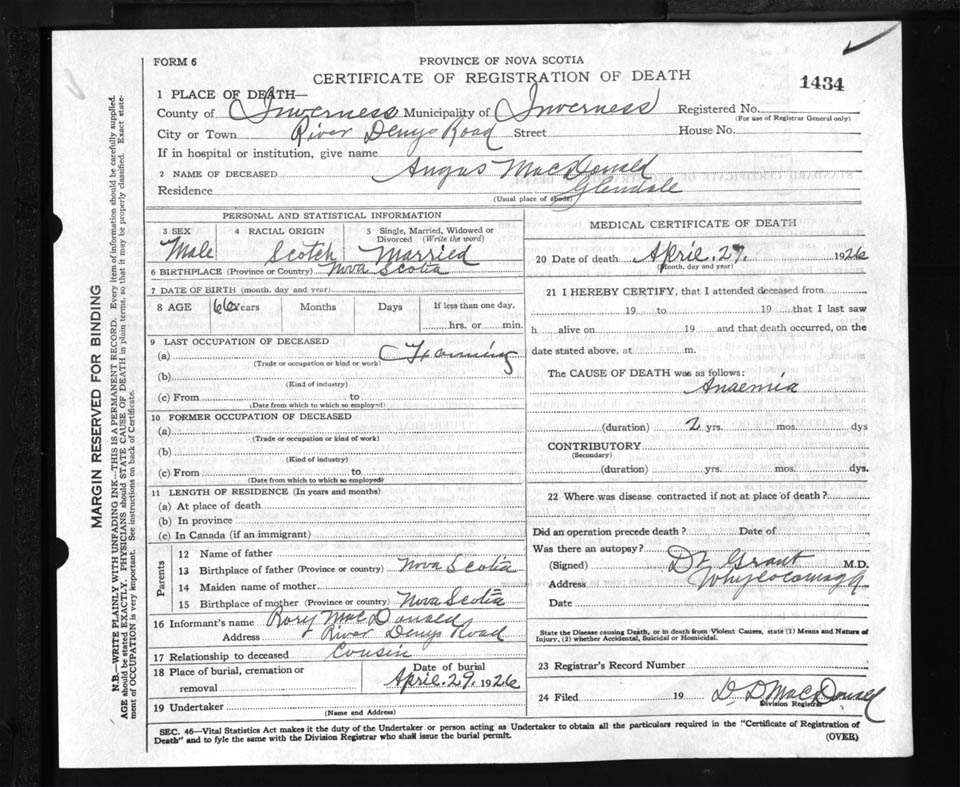 FORM 6
PROVINCE OF NOVA SCOTIA
CERTIFICATE OF REGISTRATION OF DEATH
1434
1 PLACE OF DEATH—
County of Inverness Municipality of Inverness Registered No.
(For use of Registrar General only)
City or Town River Denys Road Street House No.
If in hospital or institution, give name
2 NAME OF DECEASED Angus MacDonald
Residence Glendale
(Usual place of abode)
PERSONAL AND STATISTICAL INFORMATION
3 SEX 4 RACIAL ORIGIN 5 Single, Married, Widowed or
Divorced (Write the word)
Male Scotch Married
6 BIRTHPLACE (Province or Country) Nova Scotia
7 DATE OF BIRTH (month, day and year)
8 AGE 66 Years Months Days If less than one day,
hrs. or min.
9 LAST OCCUPATION OF DECEASED
(a) Farming
(Trade or occupation or kind or work)
(b)
(Kind of industry)
(c) From to
(Date from which to which so employed)
10 FORMER OCCUPATION OF DECEASED
(a)
(Trade or occupation or kind of work)
(b)
(Kind of industry)
(c) From to
(Date from which to which so employed)
11 LENGTH OF RESIDENCE (In years and months)
(a) At place of death
(b) In province
(c) In Canada (if an immigrant)
Parents
12 Name of father
13 Birthplace of father (Province or country) Nova Scotia
14 Maiden name of mother
15 Birthplace of mother (Province or country) Nova Scotia
16 Informant's name Rory MacDonald
Address River Denys Road
17 Relationship to deceased Cousin
18 Place of burial, cremation or Date of burial
removal April. 29. 1926
19 Undertaker
(Name and Address)
MEDICAL CERTIFICATE OF DEATH
20 Date of death April. 27. 1926
(Month, day and year)
21 I HEREBY CERTIFY, that I attended deceased from
19 to 19 that I last saw
h alive on 19 and that death occurred, on the
date stated above, at m.
The CAUSE OF DEATH was as follows:
Anaemia
(duration) 2 yrs. mos. dys
CONTRIBUTORY
(Secondary)
(duration) yrs. mos. dys.
22 Where was disease contracted if not at place of death?
Did an operation precede death? Date of
Was there an autopsy?
(Signed) Dr Grant M.D.
Address Whycocomagh
Date
State the Disease causing Death, or in death from Violent Causes, state (1) Means and Nature of
Injury, (2) whether Accidental, Suicidal or Homicidal.
23 Registrar's Record Number
24 Filed 19 D. D MacDonald
Division Registrar
SEC. 46—Vital Statistics Act makes it the duty of the Undertaker or person acting as Undertaker to obtain all the particulars required in the "Certificate of Registration of
Death" and to fyle the same with the Division Registrar who shall issue the burial permit.
(OVER)
MARGIN RESERVED FOR BINDING
N.B.—WRITE PLAINLY WITH UNFADING INK—THIS IS A PERMANENT RECORD. Every item of information should be carefully supplied.
AGE should be stated EXACTLY. PHYSICIANS should STATE CAUSE OF DEATH in plain terms, so that it may be properly classified. Exact state-
ment of OCCUPATION is very important. See instructions on back of Certificate.